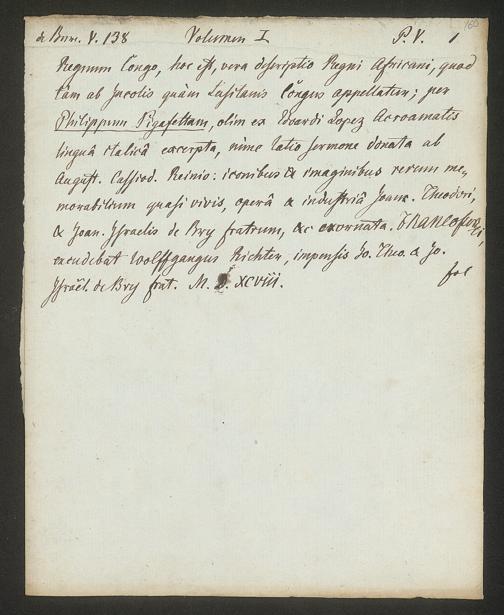 160
de Bure. V. 138 Volumen I P. V. 1
Regnum Congo, hoc est, vera descriptio Regni Africani, quod
tàm ab Incolis quàm Lusitanis Congus appellatur; per
Philippum Pigafettam, olim ex Edoardi Lopez Acroamatis
linguâ Italicâ excerpta, nunc latio sermone donata ab
August. Cassiod. Reinio: iconibus & imaginibus rerum me-
morabilium quasi vivis, operâ & industriâ Joan. Theodori,
& Joan. Israelis de Bry fratrum, &c exornata. FRANCofurti,
excudebat Wolffgangus Richter, impensis Jo. Theo. & Jo.
Israël. de Bry frat. M. D. XCVIII. fol